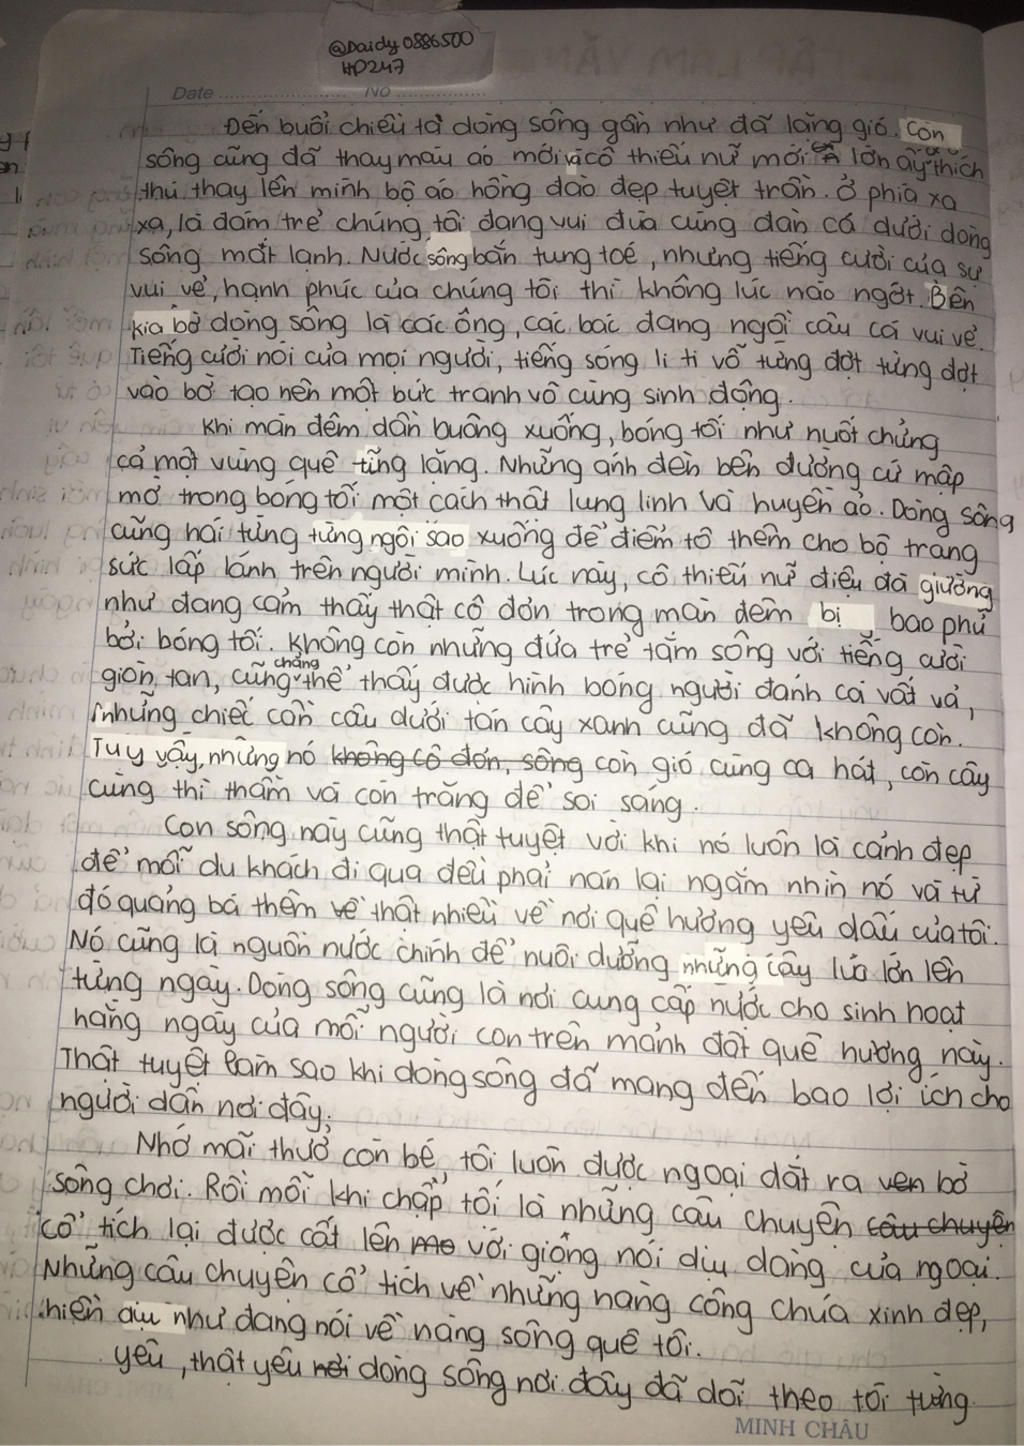 @Daidy0886500
HD247
Date ............ No ............
Đến buổi chiều tà dòng sông gần như đã lặng gió. Con
sông cũng đã thay màu áo mới và cô thiếu nữ mới lớn ấy thích
thú thay lên mình bộ áo hồng đào đẹp tuyệt trần. Ở phía xa
xa, là đám trẻ chúng tôi đang vui đùa cùng đàn cá dưới dòng
sông mát lạnh. Nước sông bắn tung toé, nhưng tiếng cười của sự
vui vẻ, hạnh phúc của chúng tôi thì không lúc nào ngớt. Bên
kia bờ dòng sông là các ông, các bác đang ngồi câu cá vui vẻ.
Tiếng cười nói của mọi người, tiếng sóng li ti vỗ từng đợt từng đợt
vào bờ tạo nên một bức tranh vô cùng sinh động.
Khi màn đêm dần buông xuống, bóng tối như nuốt chửng
cả một vùng quê tĩng lặng. Những ánh đèn bên đường cứ mập
mờ trong bóng tối một cách thật lung linh và huyền ảo. Dòng sông
cũng hái từng từng ngôi sao xuống để điểm tô thêm cho bộ trang
sức lấp lánh trên người mình. Lúc này, cô thiếu nữ điệu đà giường
như đang cảm thấy thật cô đơn trong màn đêm bị bao phủ
bởi bóng tối. Không còn những đứa trẻ tắm sông với tiếng cười
giòn tan, cũng chẳng thể thấy được hình bóng người đánh cá vất vả,
những chiếc cần câu dưới tán cây xanh cũng đã không còn.
Tuy vậy, nhưng nó không cô đơn, sông còn gió cùng ca hát, còn cây
cùng thì thầm và còn trăng để soi sáng.
Con sông này cũng thật tuyệt vời khi nó luôn là cảnh đẹp
để mỗi du khách đi qua đều phải nán lại ngắm nhìn nó và từ
đó quảng bá thêm về thật nhiều về nơi quê hương yêu dấu của tôi.
Nó cũng là nguồn nước chính để nuôi dưỡng những cây lúa lớn lên
từng ngày. Dòng sông cũng là nơi cung cấp nước cho sinh hoạt
hằng ngày của mỗi người con trên mảnh đất quê hương này.
Thật tuyệt làm sao khi dòng sông đã mang đến bao lợi ích cho
người dân nơi đây.
Nhớ mãi thuở còn bé, tôi luôn được ngoại dắt ra ven bờ
sông chơi. Rồi mỗi khi chập tối là những câu chuyện câu chuyện
cổ tích lại được cất lên mo với giọng nói dịu dàng của ngoại.
Những câu chuyện cổ tích về những nàng công chúa xinh đẹp,
hiền dịu như đang nói về nàng sông quê tôi.
yêu, thật yêu nơi dòng sông nơi đây đã dõi theo tôi từng
MINH CHÂU